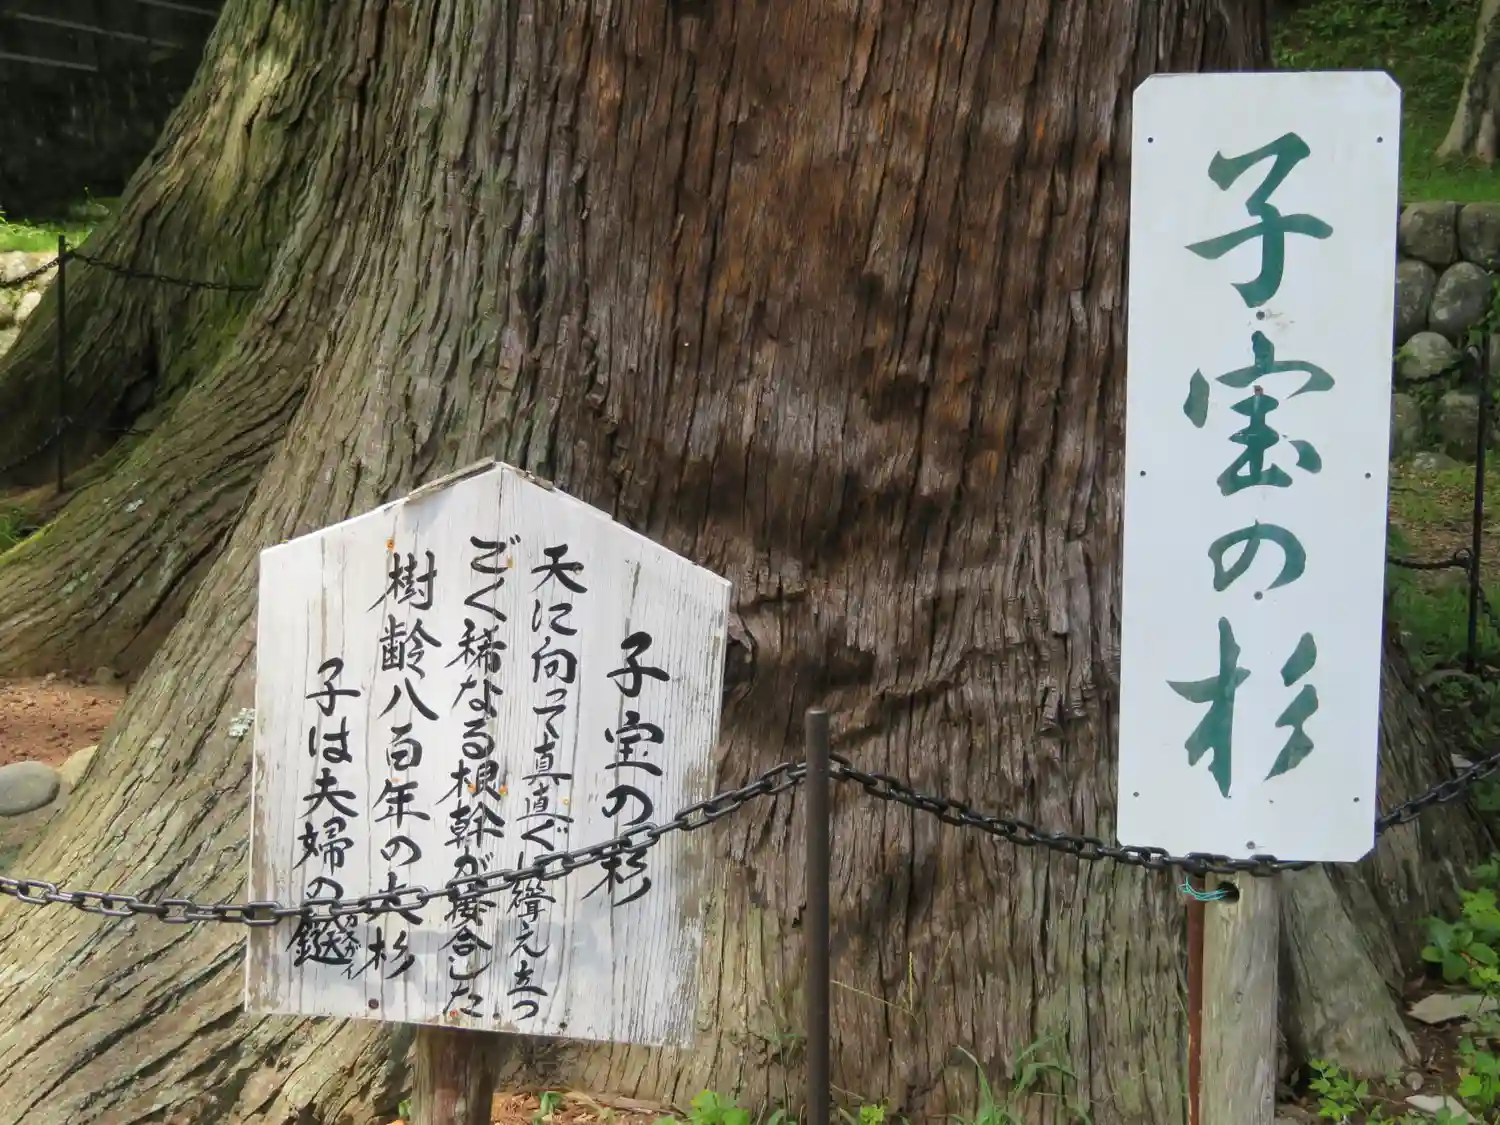 子宝の杉
子宝の杉
天に向って真直ぐに聳え立つ
ごく稀なる根幹が癒合した
樹齢八百年の大杉
子は夫婦の鎹
カスガイ